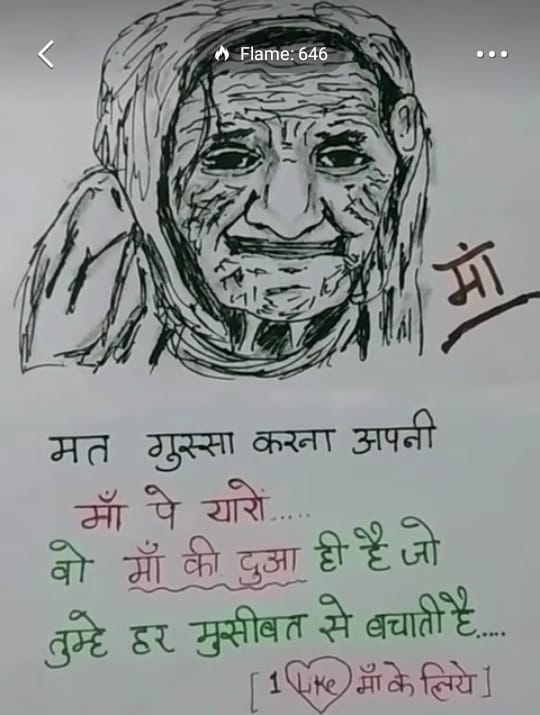 Flame: 646
माँ
मत गुस्सा करना अपनी
माँ पे यारों.....
वो माँ की दुआ ही है जो
तुम्हे हर मुसीबत से बचाती है....
[ 1 Like माँ के लिये ]